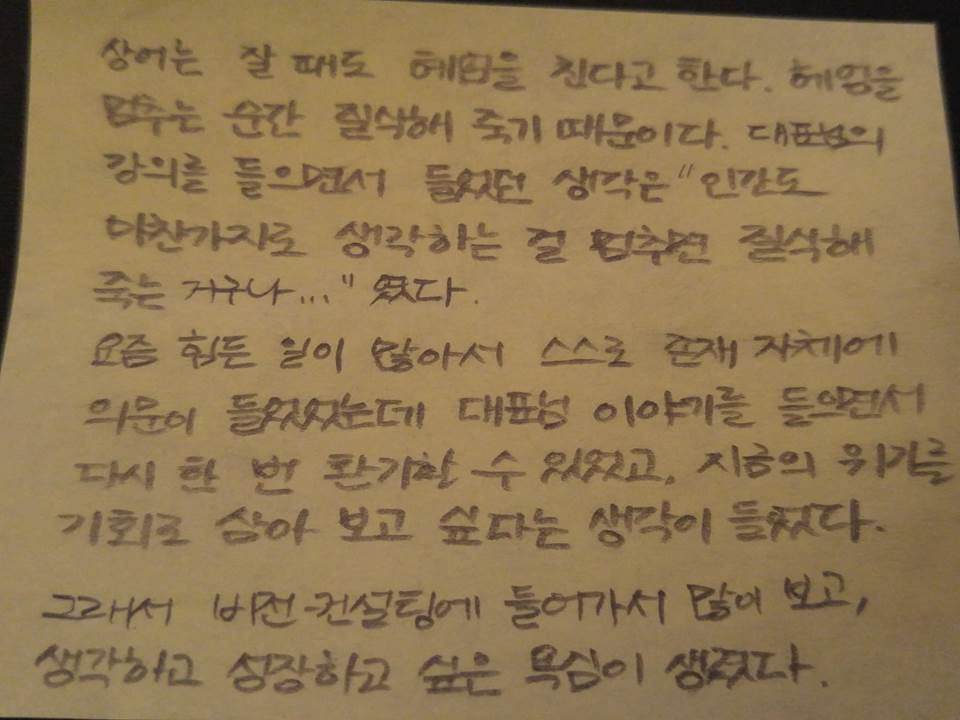 상어는 잘 때도 헤엄을 친다고 한다. 헤엄을
멈추는 순간 질식해 죽기 때문이다. 대표님의
강의를 들으면서 들었던 생각은 "인간도
마찬가지로 생각하는 걸 멈추면 질식해
죽는 거구나..." 였다.
요즘 힘든 일이 많아서 스스로 존재 자체에
의문이 들었었는데 대표님 이야기를 들으면서
다시 한 번 환기할 수 있었고, 지금의 위기를
기회로 삼아 보고 싶다는 생각이 들었다.
그래서 비전컨설팅에 들어가서 많이 보고,
생각하고 성장하고 싶은 욕심이 생겼다.